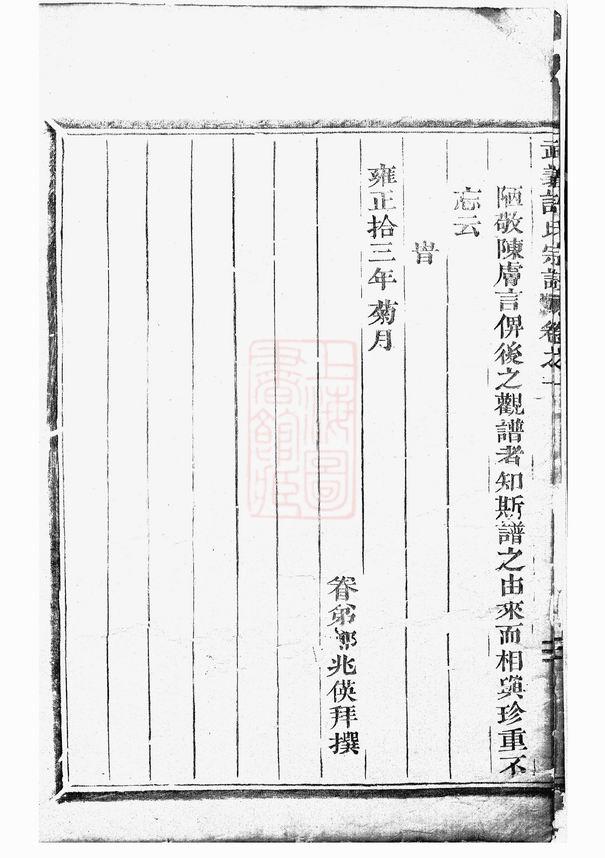 陋敬陳膚言俾後之觀譜者知斯譜之由來而相與珍重不
忘云
旹
雍正拾三年菊月
眷弟鄭兆偀拜撰
武義許氏宗譜 卷之一
上海圖書館藏